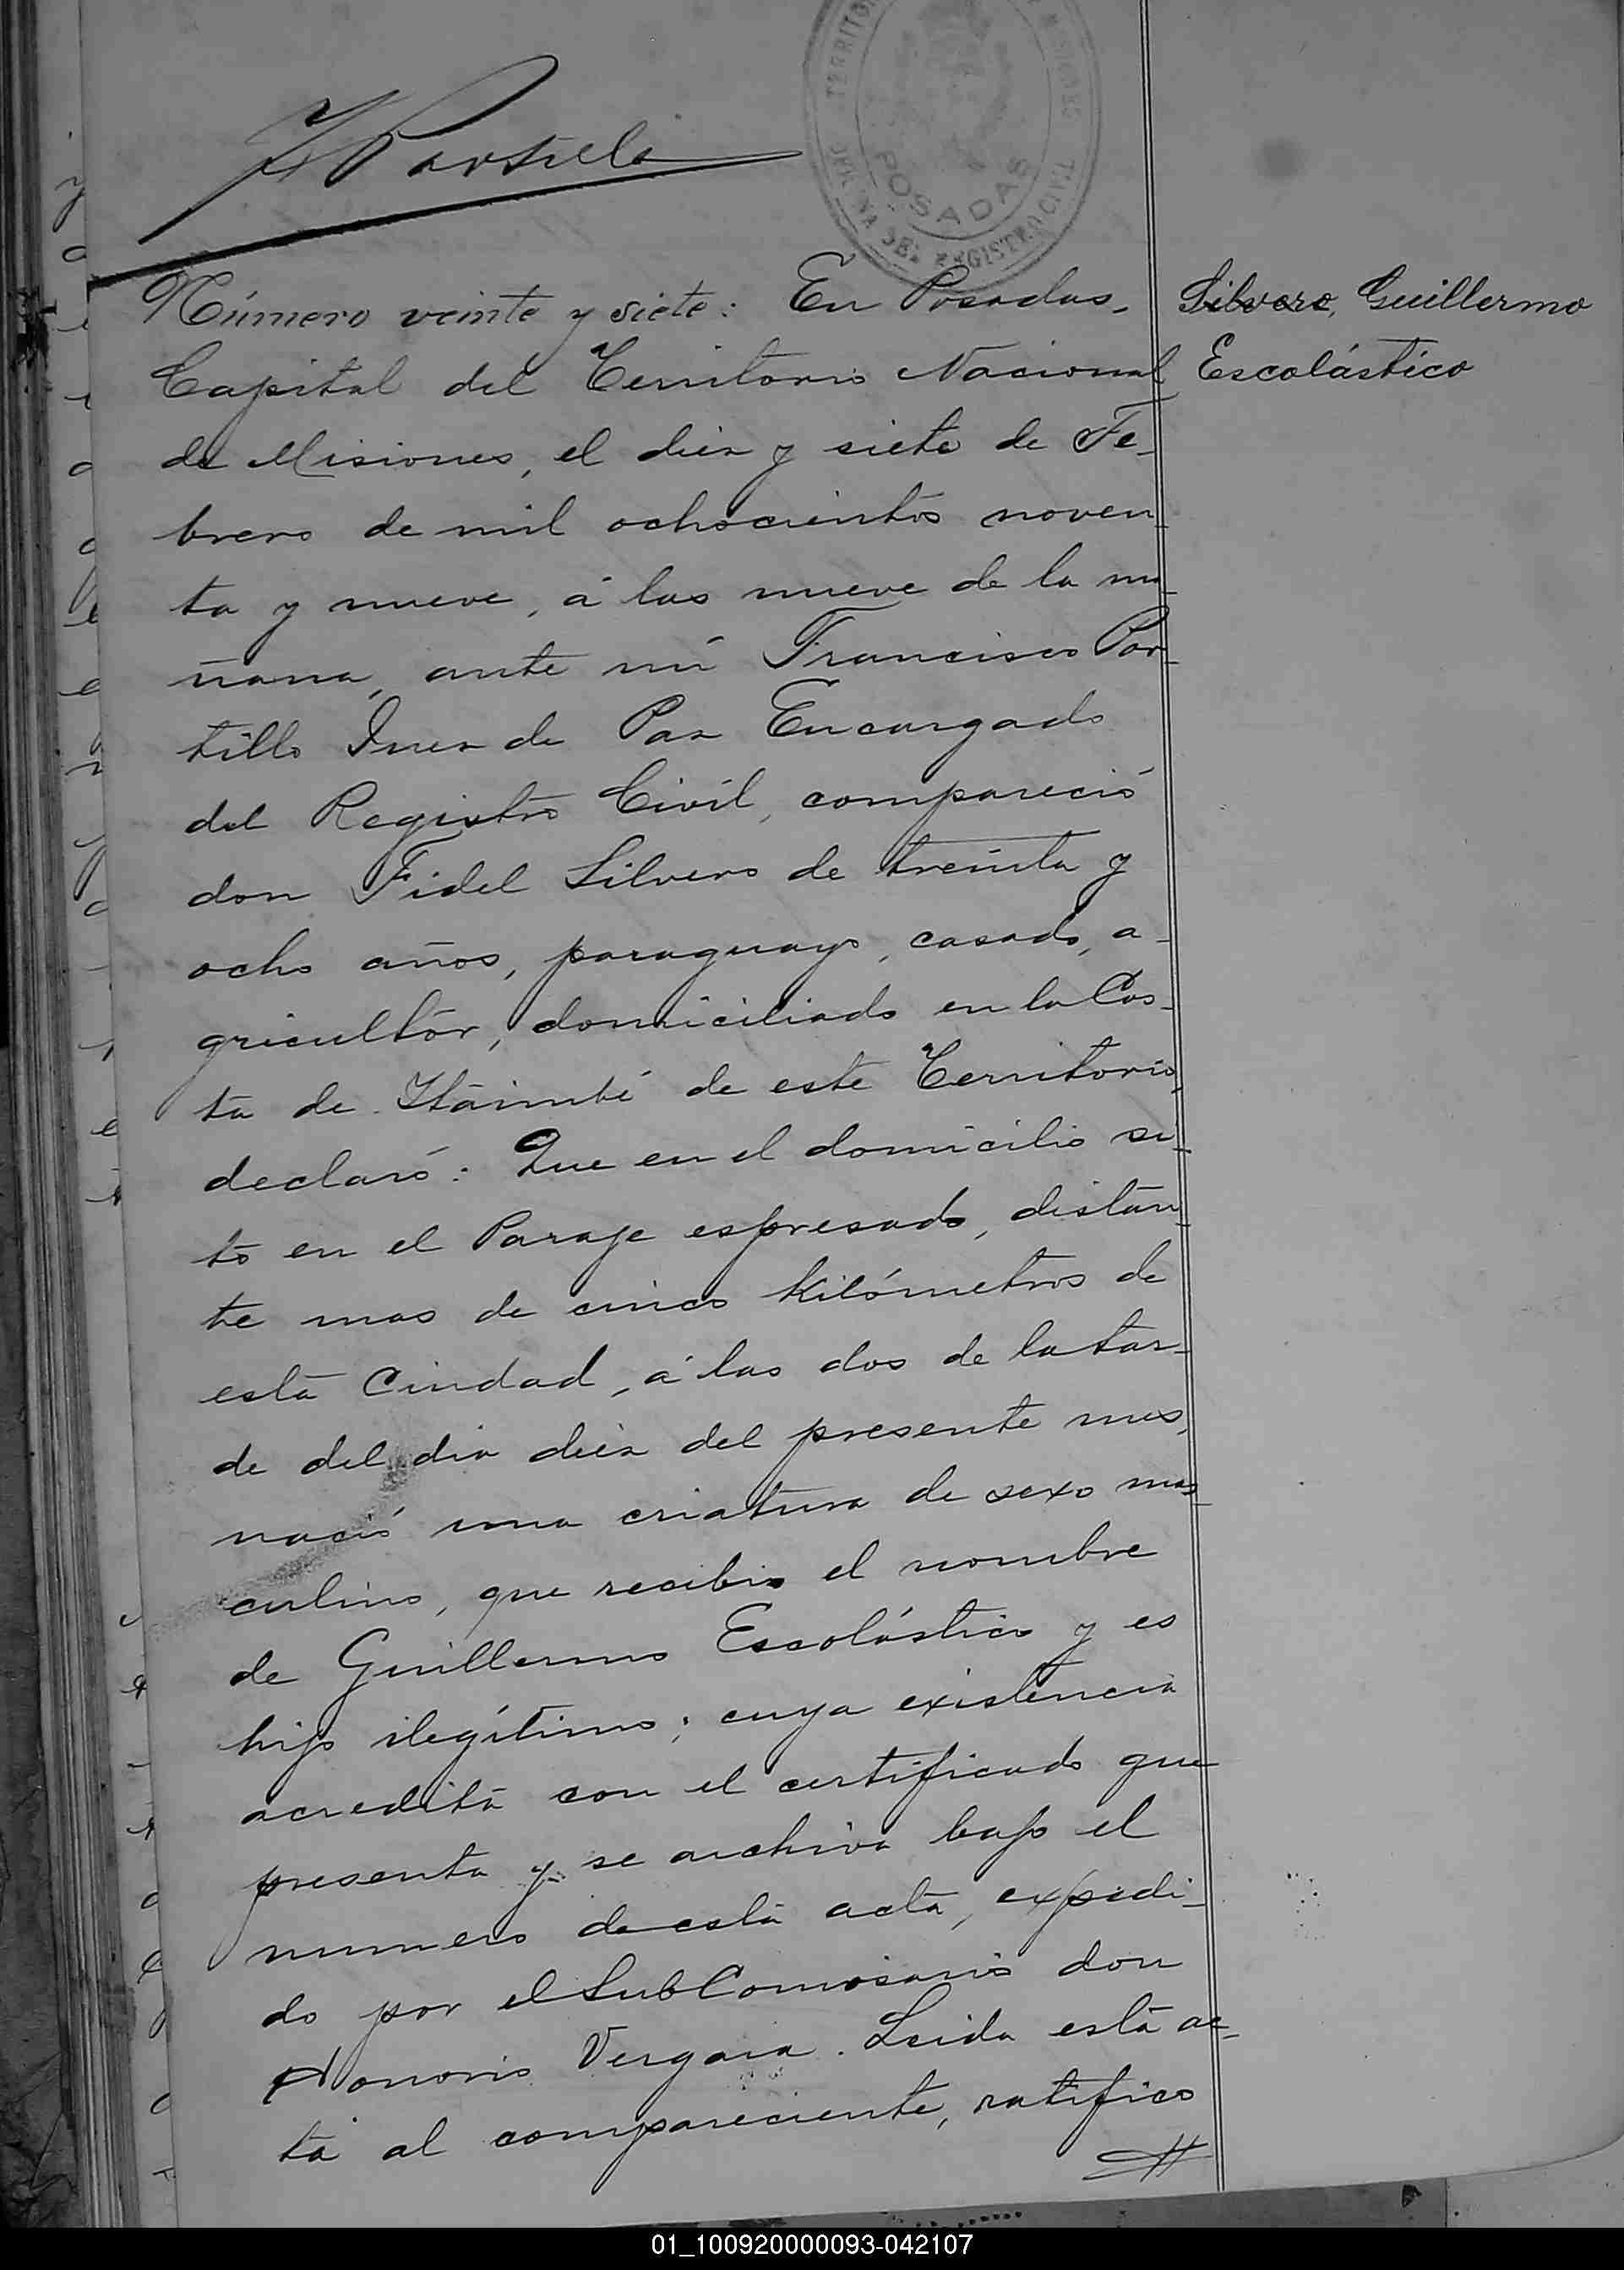 F Portillo
TERRITORIO
MISIONES
OFICINA DEL REGISTRO CIVIL
POSADAS
Silvero, Guillermo
Escolástico
Número veinte y siete: En Posadas,
Capital del Territorio Nacional
de Misiones, el diez y siete de Fe-
brero de mil ochocientos noven-
ta y nueve, á las nueve de la ma-
ñana, ante mi Francisco Por-
tillo Juez de Paz Encargado
del Registro Civil, compareció
don Fidel Silvero de treinta y
ocho años, paraguayo, casado, a-
gricultor, domiciliado en la Cos-
ta de Itaimbé de este Territorio,
declaró: Que en el domicilio si-
to en el Paraje espresado, distan-
te mas de cinco kilómetros de
esta Ciudad, á las dos de la tar-
de del dia diez del presente mes,
nació una criatura de sexo mas-
culino, que recibio el nombre
de Guillermo Escolástico y es
hijo ilegítimo; cuya existencia
acredita con el certificado que
presenta y se archiva bajo el
numero de esta acta, expedi-
do por el SubComisario don
Honorio Vergara. Leida esta ac-
ta al compareciente, ratifico
01_100920000093-042107